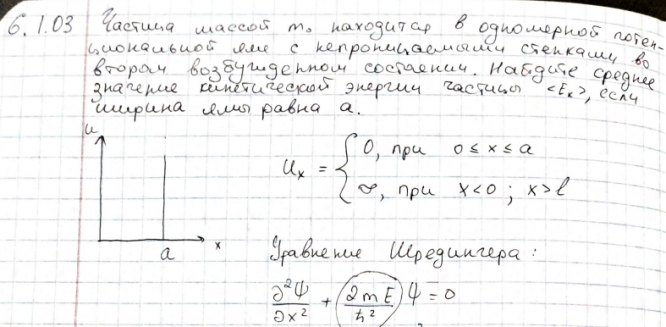 6.1.03 Частица массой m₀ находится в одномерной потен-
циональной яме с непроницаемыми стенками во
втором возбужденном состоянии. Найдите среднее
значение кинетической энергии частицы <Eₖ>, если
ширина ямы равна a.
u
a x
Uₓ = { 0, при 0 ≤ x ≤ a
∞, при x<0 ; x>l
Уравнение Шредингера:
∂²Ψ/∂x² + (2mE/ħ²) Ψ = 0